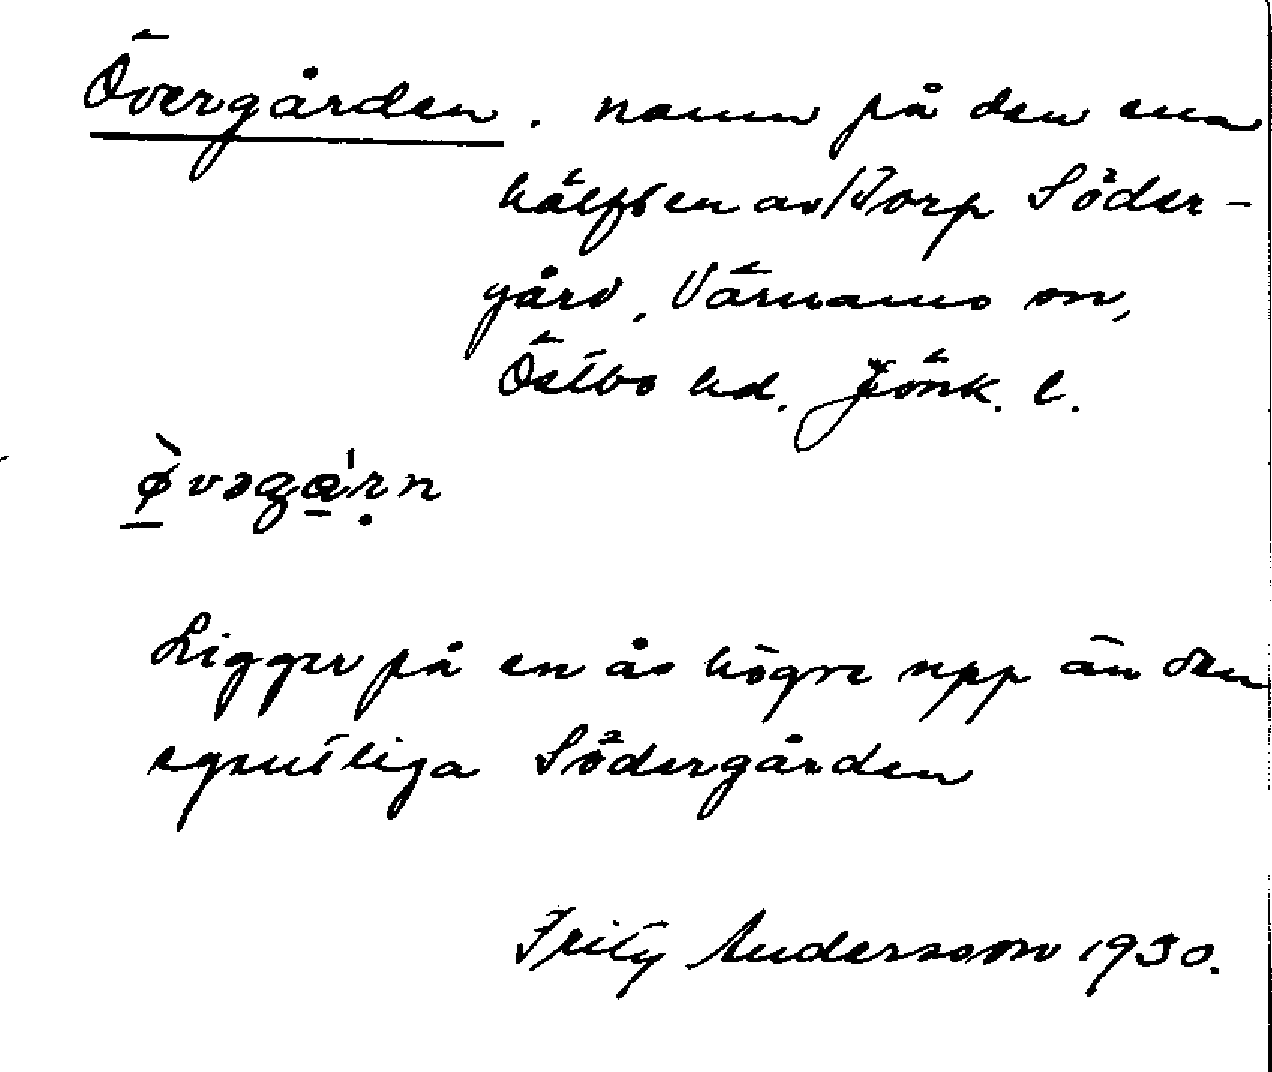 Övergården. namn på den ena
hälften av/Torp Söder-
gård, Värnamo sn,
Östbo hd. Jönk. l.
ø̀vəga̱'ṛn
Ligger på en ås högre upp än den
egentliga Södergården
Fritz Andersson 1930.